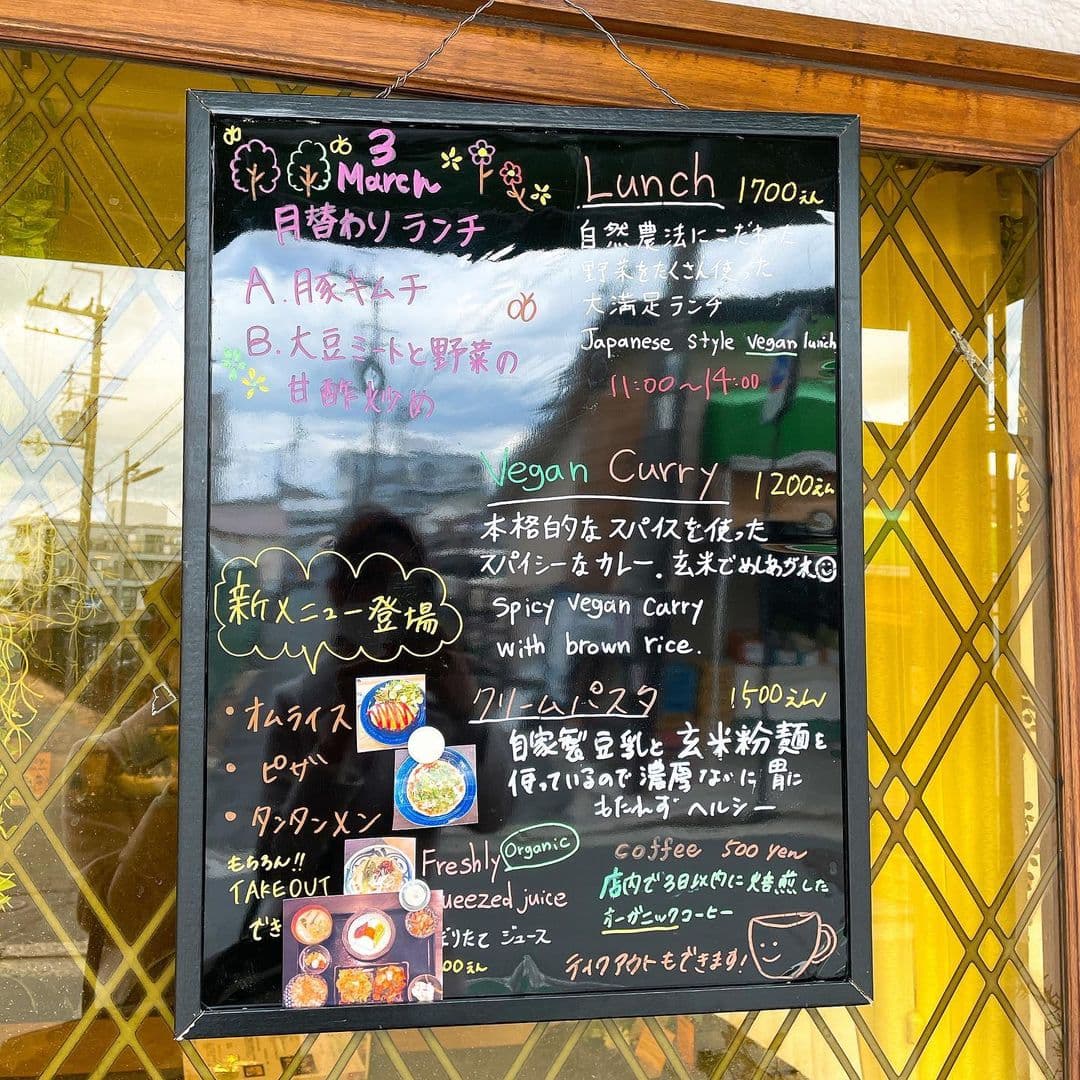 3
March
月替わりランチ
A.豚キムチ
B.大豆ミートと野菜の
甘酢炒め
Lunch 1700えん
自然農法にこだわった
野菜をたくさん使った
大満足ランチ
Japanese style vegan lunch
11:00~14:00
Vegan Curry 1200えん
本格的なスパイスを使った
スパイシーなカレー.玄米でめしあがれ
Spicy vegan curry
with brown rice.
新メニュー登場
・オムライス
・ピザ
・タンタンメン
もちろん!!
TAKEOUT
でき
クリームパスタ 1500えん
自家製豆乳と玄米粉麺を
使っているので濃厚なのに胃に
もたれずヘルシー
Freshly Organic
ueezed juice
りたて ジュース
00えん
coffee 500 yen
店内で3日以内に焙煎した
オーガニックコーヒー
テイクアウトもできます!